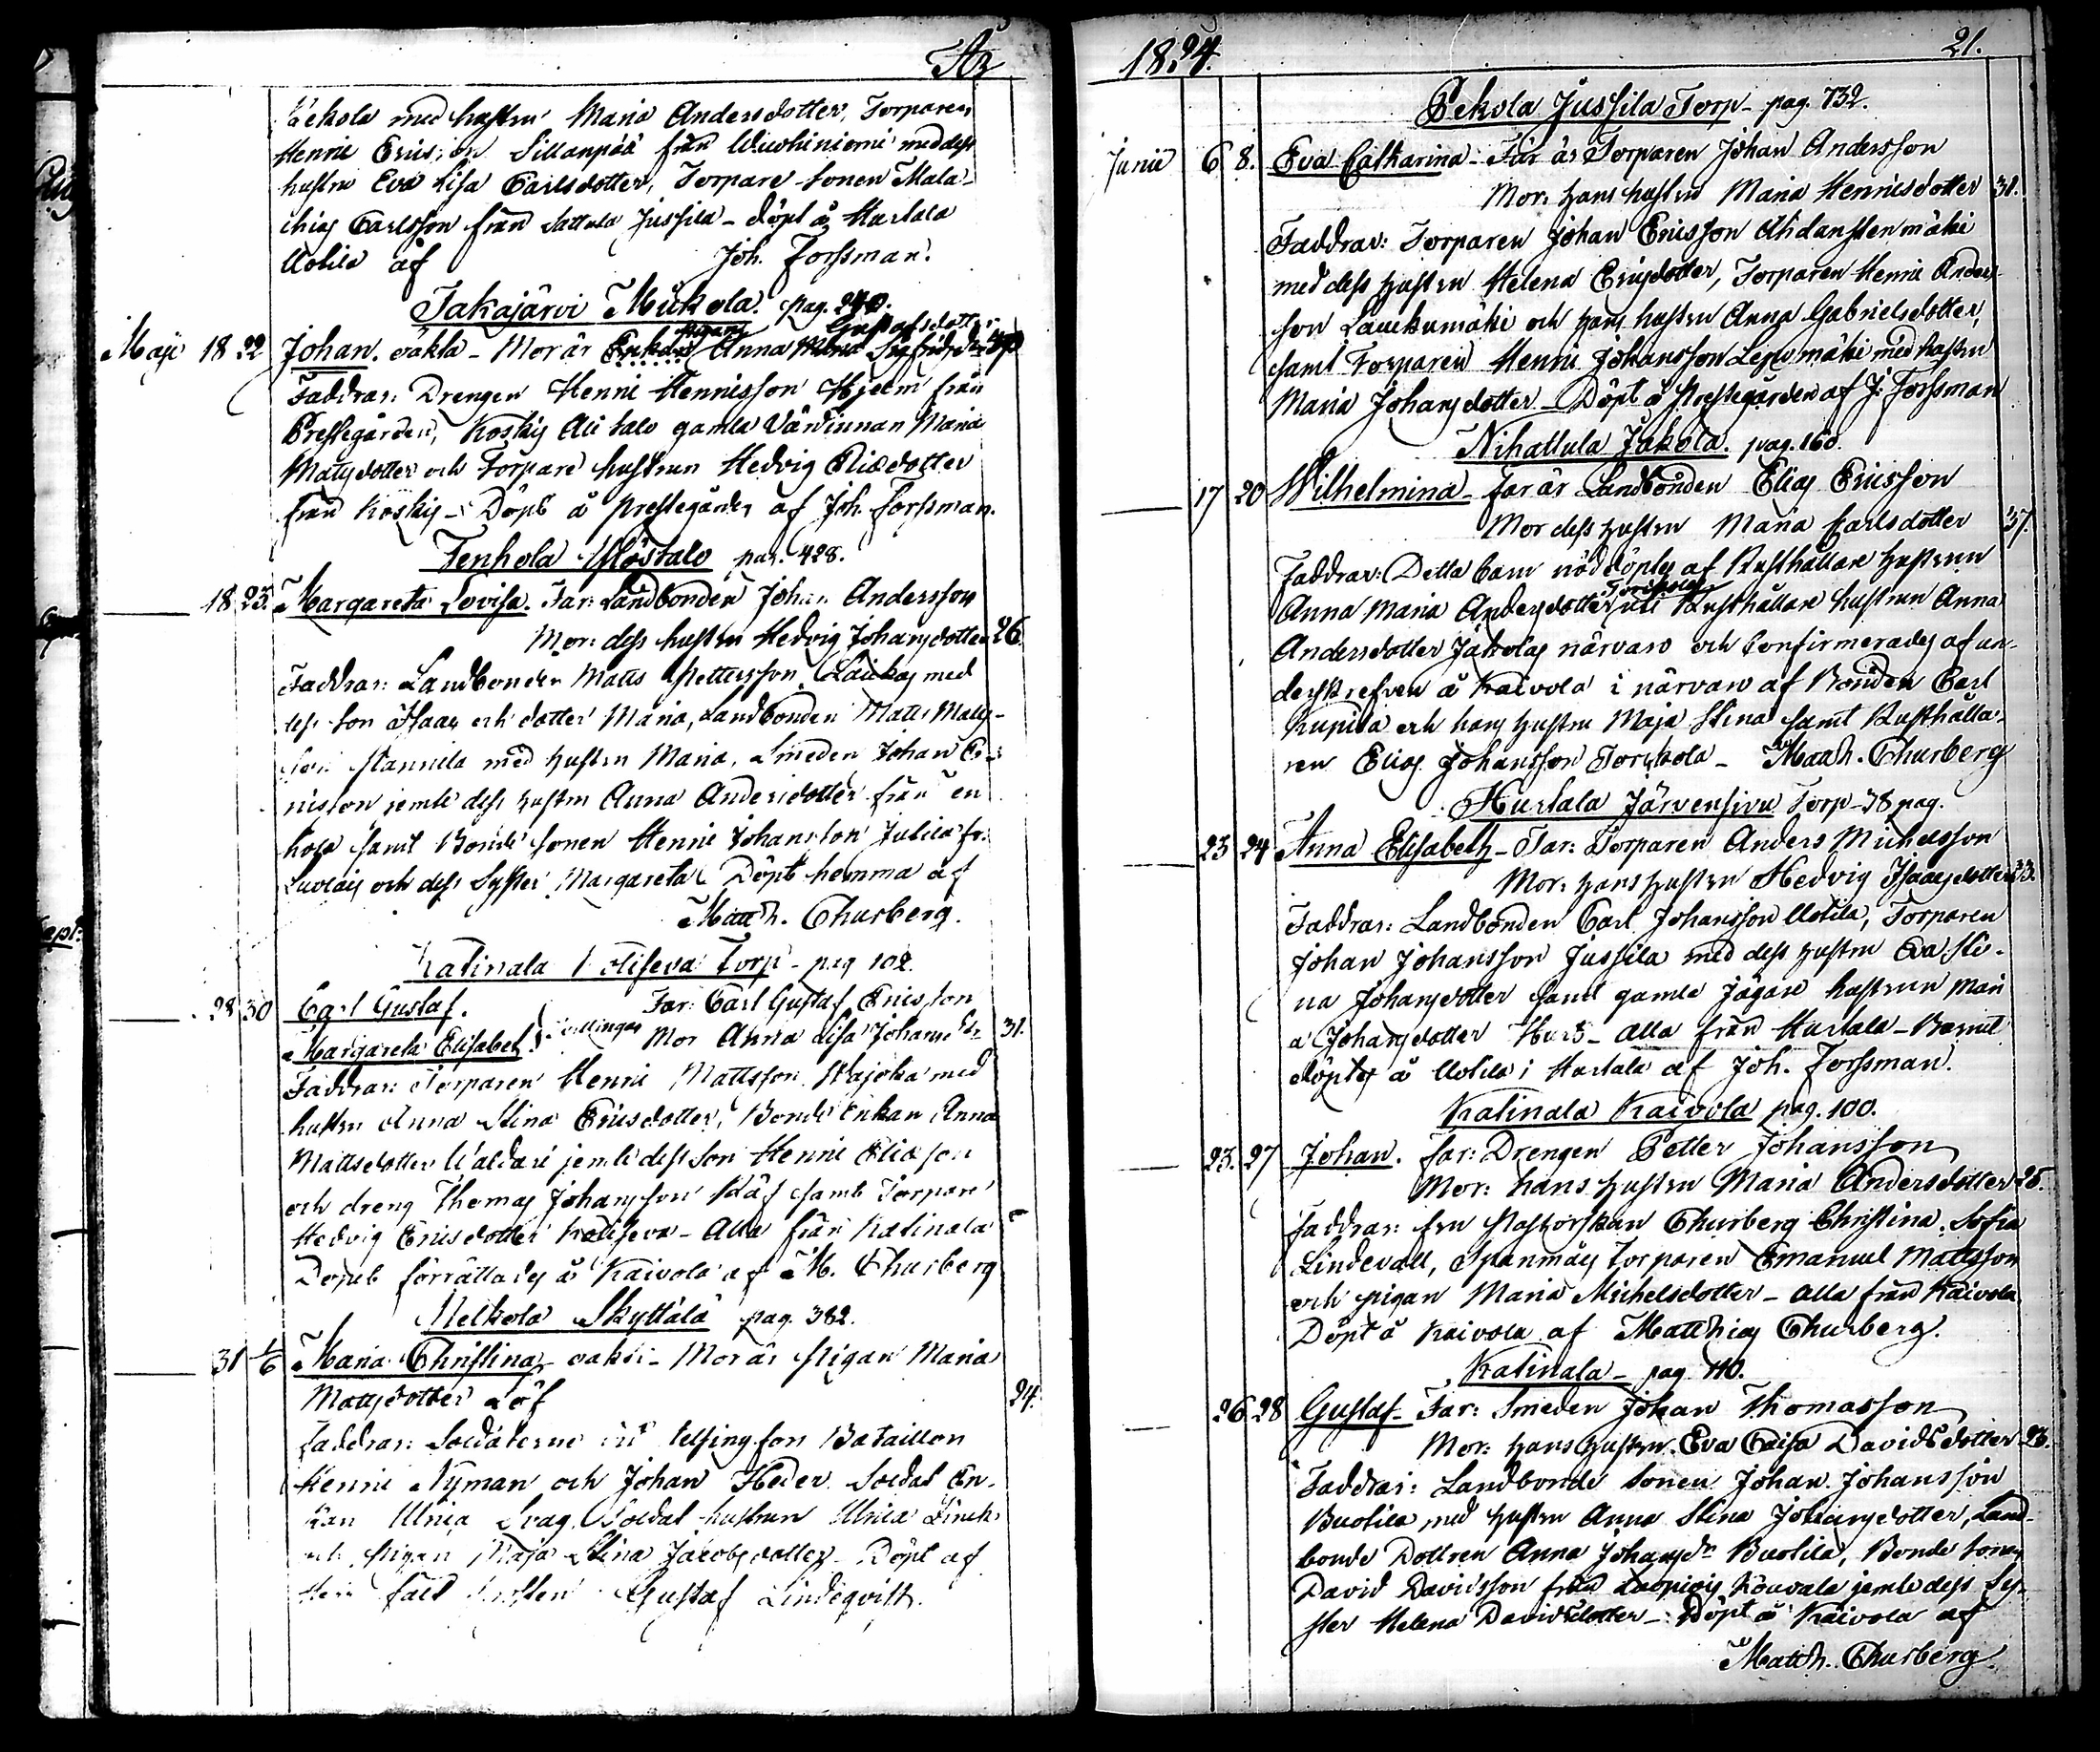 År
Pekola med hustrun Maria Andersdotter, Torparen
Henric Ericsson Sillanpää från Wuohiniemi med dess
hustru Eva Lisa Carlsdotter, Torpare sonen Mala-
chias Carlsson från Sattula Jussila - döpt å Hurtala
Uotila af Joh. Forssman.
Takajärvi Mickola. pag. 240.
Maji 18 22 Johan. oäkta - Mor är Enkan pigan Anna Gustafsdotter
Faddrar: Drengen Henric Henricsson Hjelm från
Prestegården, Koskis Ali talo gamla Värdinnan Maria
Matsdotter och Torpare hustrun Hedvig Eliedotter
från Koskis - Döpt å prestegården af Joh. Forssman.
Tenhola Ylöstalo pag. 428.
18 23. Margareta Lovisa. Far: Landbonden Johan Andersson
Mor: dess hustru Hedvig Johansdotter 26.
Faddrar: Landbonden Matts Pettersson Laukas med
dess son Isaac och dotter Maria, Landbonden Matts Mats-
son Mannila med hustru Maria, Smeden Johan Er-
nisson jemte dess hustru Anna Andersdotter från
samt Bonde sonen Henric Johansson Jutila fr.
och dess Syster Margareta. Döpt hemma af
Matth. Churberg.
Katinala Torp - pag 102.
28 30 Carl Gustaf. Far: Carl Gustaf Ericsson
Margareta Elisabet. Tvillingar Mor Anna Lisa Johansdr 31.
Faddrar: Torparen Henric Mattsson Wajoka med
hustru Anna Stina Ericsdotter, Bonde Enkan Anna
Mattsdotter Waldari jemte dess son Henric Eliasson
och dreng Thomas Johansson samt Torpare
Hedvig Ericsdotter - Alla från Katinala
Dopet förrättades å Kaivola af M. Churberg
Melkola Skyttälä pag. 382.
31 1/6 Maria Christina - oäkta - Mor är Pigan Maria
Mattsdotter Löf 24.
Faddrar: Soldaterne vid Helsingfors Bataillon
Henric Nyman och Johan Heder. Soldat En-
kan Ulrica Svag, Soldat hustrun Ulrica
och Pigan Maja Stina Jacobsdotter - Döpt af
Herr Gustaf Lindeqvist.
1824. 21.
Pekola Jussila Torp - pag. 132.
Junii 6 8. Eva Catharina - Far är Torparen Johan Andersson
Mor: hans hustru Maria Henricsdotter 31.
Faddrar: Torparen Johan Ericsson Ahdanstenmäki
med dess hustru Helena Ericsdotter, Torparen Henric Anders-
son Laukumäki och hans hustru Anna Gabrielsdotter,
samt Torparen Henric Johansson mäki med hustru
Maria Johansdotter - Döpt å Prestegården af J. Forssman
Nihattula Jakola. pag. 160.
17 20 Wilhelmina - Far är Landbonden Elias Ericsson
Mor dess hustru Maria Carlsdotter 37.
Faddrar: Detta barn nöddöptes af Rusthållare hustrun
Anna Maria Andersdotter Torickola uti Rusthållare hustrun Anna
Andersdotter Jakolas närvaro och Confirmerades af un-
derskrefven å Kaivola i närvaro af Bonden Carl
Kupila och hans hustru Maja Stina samt Rusthålla-
ren Elias Johansson Torickola - Matth. Churberg
Hurtala Järvensivu Torp - 38 pag.
23 24 Anna Elisabeth - Far: Torparen Anders Michelsson
Mor: hans hustru Hedvig Isaacsdotter 33.
Faddrar: Landbonden Carl Johansson Uotila, Torparen
Johan Johansson Jussila med dess hustru Eva Sti-
na Johansdotter samt gamla Jägare hustrun Mari
a Johansdotter Hurs - alla från Hurtala - Barnet
döptes å Uotila i Hurtala af Joh. Forssman.
Katinala Kaivola pag. 100.
23. 27 Johan. Far: Drengen Petter Johansson
Mor: hans hustru Maria Andersdotter 25.
Faddrar: fru Pastorskan Churberg Christina Sofia
Lindevall, Spanmäs Torparen Emanuel Mattsson
och pigan Maria Michelsdotter - alla från Kaivola
Döpt å Kaivola af Matthias Churberg.
Katinala - pag. 110.
26 28 Gustaf - Far: Smeden Johan Thomasson
Mor: hans hustru Eva Caisa Davidsdotter 23.
Faddrar: Landbonde sonen Johan Johansson
Buotila med hustru Anna Stina Johansdotter, Land-
bonde Dottren Anna Johansdr Buotila, Bonde sonen
David Davidsson från Kouvala jemte dess Sy-
ster Helena Davidsdotter - Döpt å Kaivola af
Matth. Churberg